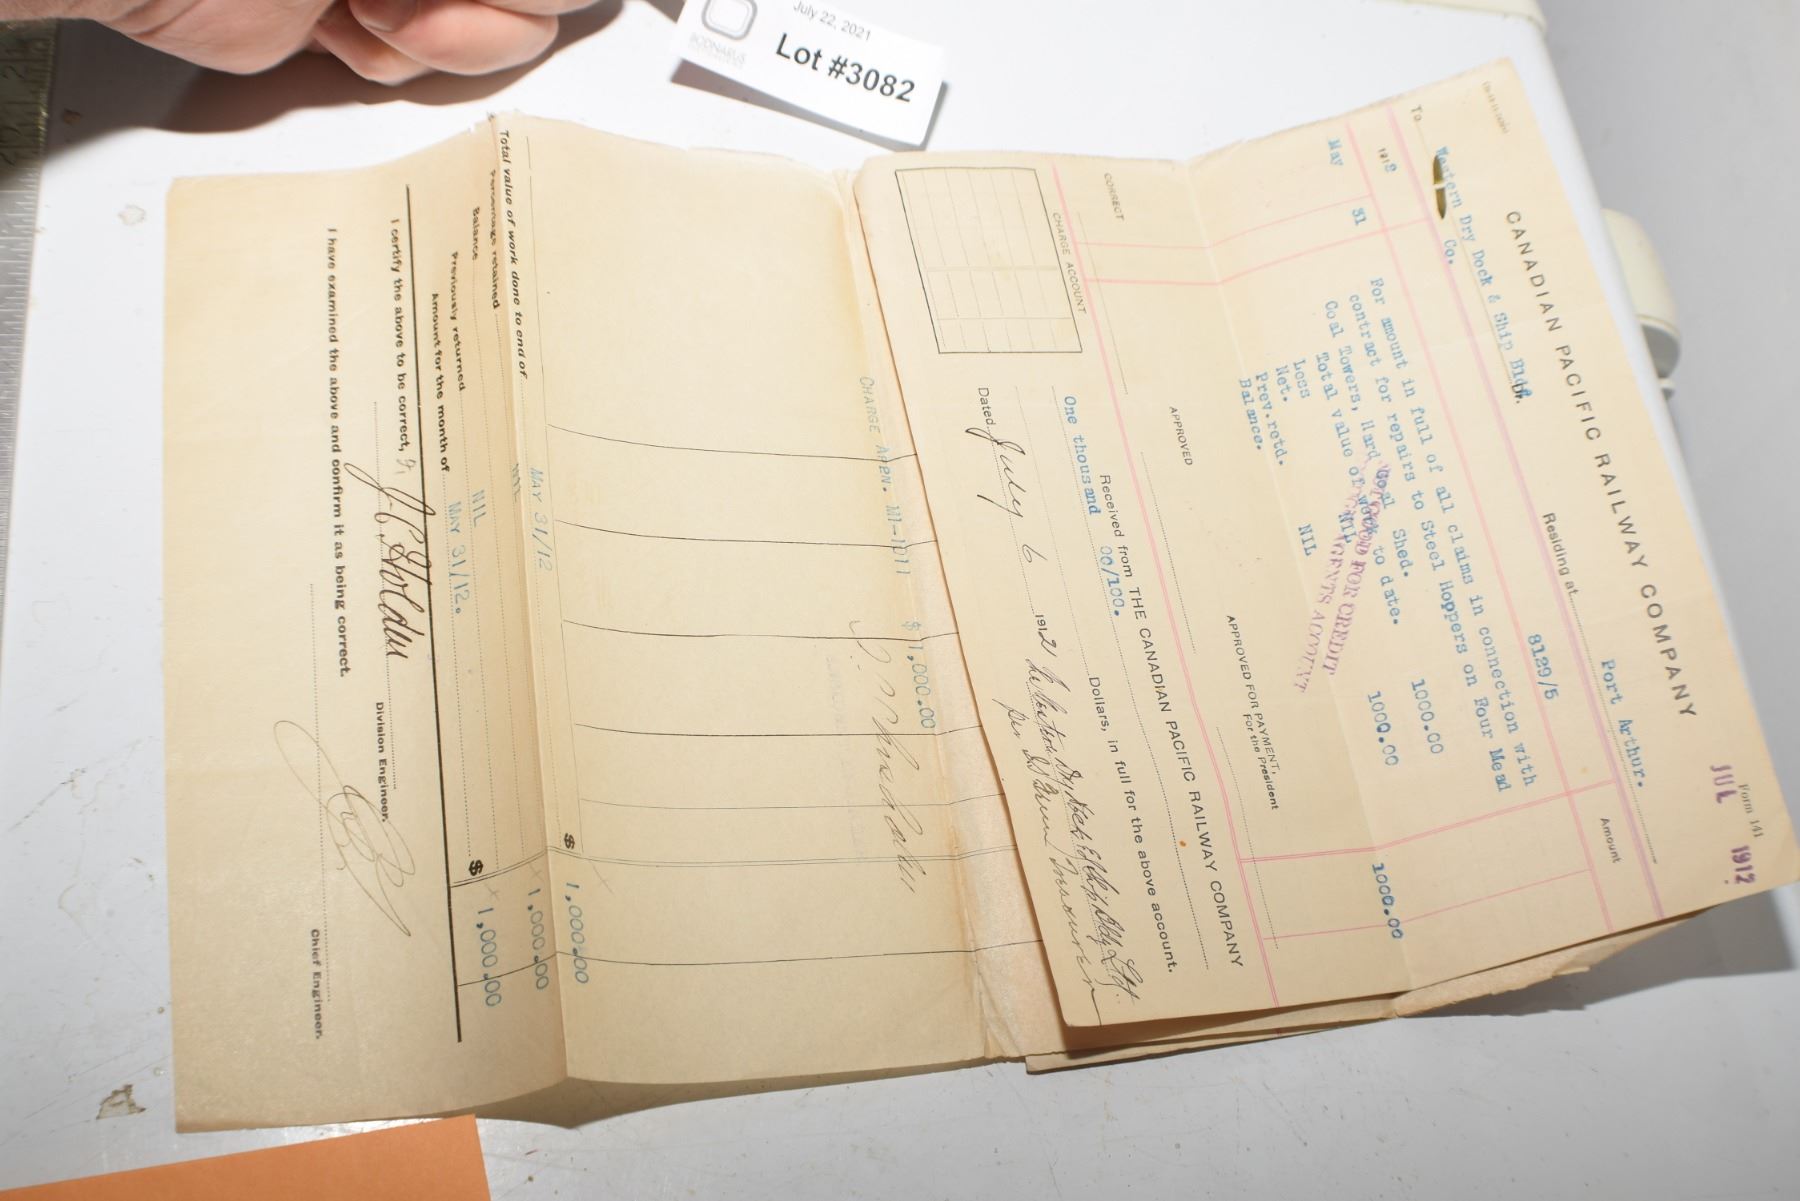 July 22, 2021
BODNARUS
Lot #3082
Form 141
JUL 1912
CANADIAN PACIFIC RAILWAY COMPANY
Port Arthur.
To Western Dry Dock & Ship Bldg. Dr. Residing at
Co.
8129/5
1912
Amount
May 31
For amount in full of all claims in connection with
contract for repairs to Steel Hoppers on Four Mead
Coal Towers, Hard Coal Shed.
Total value of work to date. 1000.00
Less NIL
Net. 1000.00
Prev.retd. NIL
Balance. 1000.00
FOR CREDIT
AGENTS ACCOUNT
CORRECT
APPROVED
APPROVED FOR PAYMENT,
For the President
CHARGE ACCOUNT
Received from THE CANADIAN PACIFIC RAILWAY COMPANY
One thousand 00/100. Dollars, in full for the above account.
Dated July 6 1912
Per
CHARGE APPN. M1-1011 $ 1,000.00
Total value of work done to end of MAY 31/12 $ 1,000.00
Percentage retained NIL
Balance 1,000.00
Previously returned NIL
Amount for the month of MAY 31/12. $ 1,000.00
I certify the above to be correct,
J C Holden
Division Engineer.
I have examined the above and confirm it as being correct.
Chief Engineer.